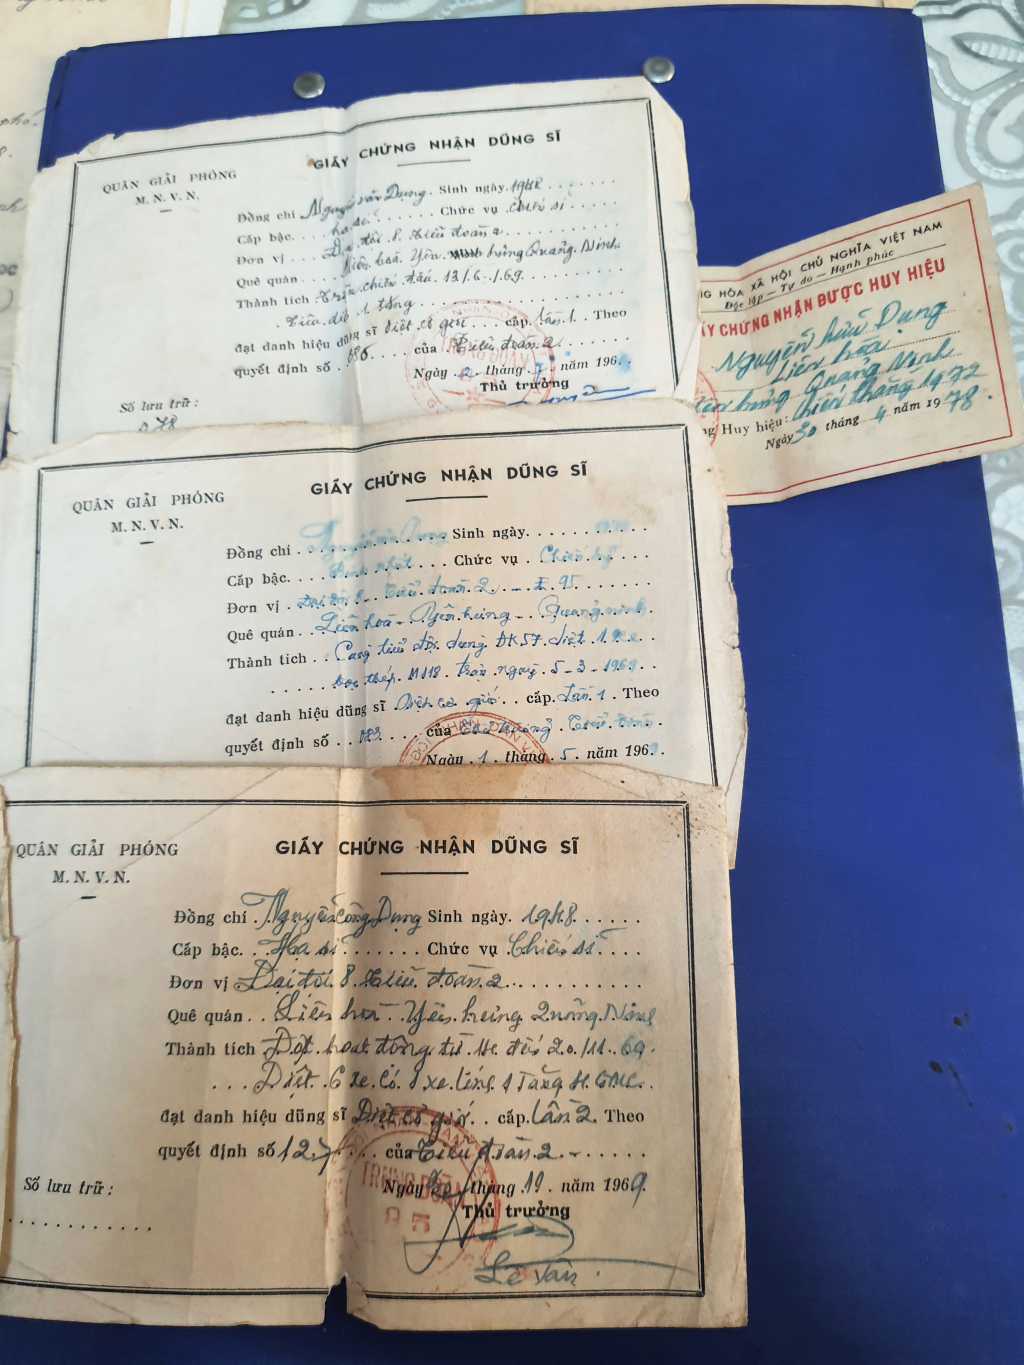 GIẤY CHỨNG NHẬN DŨNG SĨ
QUÂN GIẢI PHÓNG
M.N.V.N.
Đồng chí Nguyễn văn Dụng Sinh ngày 1948
Cấp bậc hạ sĩ Chức vụ chiến sĩ
Đơn vị Đại đội 8 tiểu đoàn 2
Quê quán Liên hoà Yên hưng Quảng Ninh
Thành tích Trận chiến đấu 13/6/69
tiêu diệt 1 tăng
đạt danh hiệu dũng sĩ diệt cơ giới cấp lần 1 Theo
quyết định số 086 của Tiểu đoàn 2
TRUNG ĐOÀN
Ngày 2 tháng 7 năm 196
Thủ trưởng
Số lưu trữ:
078
HÒA XÃ HỘI CHỦ NGHĨA VIỆT NAM
Độc lập - Tự do - Hạnh phúc
CHỨNG NHẬN ĐƯỢC HUY HIỆU
Nguyễn hữu Dụng
Liên hòa
hưng Quảng Ninh
Huy hiệu: chiến thắng 1972
Ngày 30 tháng 4 năm 1978.
GIẤY CHỨNG NHẬN DŨNG SĨ
QUÂN GIẢI PHÓNG
M.N.V.N.
Đồng chí Nguyễn Dụng Sinh ngày 1948
Cấp bậc Binh nhất Chức vụ Chiến sỹ
Đơn vị Đại đội 8 - Tiểu đoàn 2 - E 95
Quê quán Liên hoà - Yên hưng - Quảng ninh
Thành tích Cùng tiểu đội dùng ĐK57 diệt 1 xe
bọc thép M118 trận ngày 5-3-1969
đạt danh hiệu dũng sĩ Diệt cơ giới cấp Lần 1 Theo
quyết định số 083 của Thủ trưởng Tiểu đoàn
Ngày 1 tháng 5 năm 1969
GIẤY CHỨNG NHẬN DŨNG SĨ
QUÂN GIẢI PHÓNG
M.N.V.N.
Đồng chí Nguyễn Công Dụng Sinh ngày 1948
Cấp bậc Hạ sĩ Chức vụ Chiến sĩ
Đơn vị Đại đội 8 tiểu đoàn 2
Quê quán Liên hoà Yên hưng Quảng Ninh
Thành tích Đợt hoạt động từ hè đến 20/11-69.
Diệt 6 xe có 1 Tăng GMC
đạt danh hiệu dũng sĩ Diệt cơ giới cấp lần 2 Theo
quyết định số 127 của Tiểu đoàn 2
TRUNG ĐOÀN
95
Ngày tháng 11 năm 1969
Thủ trưởng
Số lưu trữ:
Lê Văn